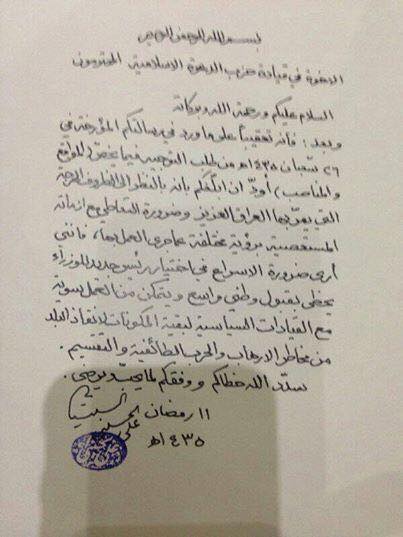 بسم الله الرحمن الرحيم
الاخوة في قيادة حزب الدعوة الاسلامية المحترمون
السلام عليكم ورحمة الله وبركاته
وبعد : فأنه تعقيباً على ما ورد في رسالتكم المؤرخة في
٢٦ شعبان ١٤٣٥هـ من طلب التوجيه فيما يخصّ (المواقع
والمناصب) أودّ ان ابلّغكم بانه بالنظر الى الظروف الحرجة
التي يمرّ بها العراق العزيز وضرورة التعاطي مع ازماته
المستعصية برؤية مختلفة عما جرى العمل بها، فانني
أرى ضرورة الاسراع في اختيار رئيس جديد للوزراء
يحظى بقبول وطني واسع ويتمكن من العمل سوية
مع القيادات السياسية لبقية المكونات لانقاذ البلد
من مخاطر الارهاب والحرب الطائفية والتقسيم .
سدّد الله خطاكم ووفقكم لما يحبّ ويرضى .
علي الحسيني السيستاني
١١ رمضان
١٤٣٥هـ